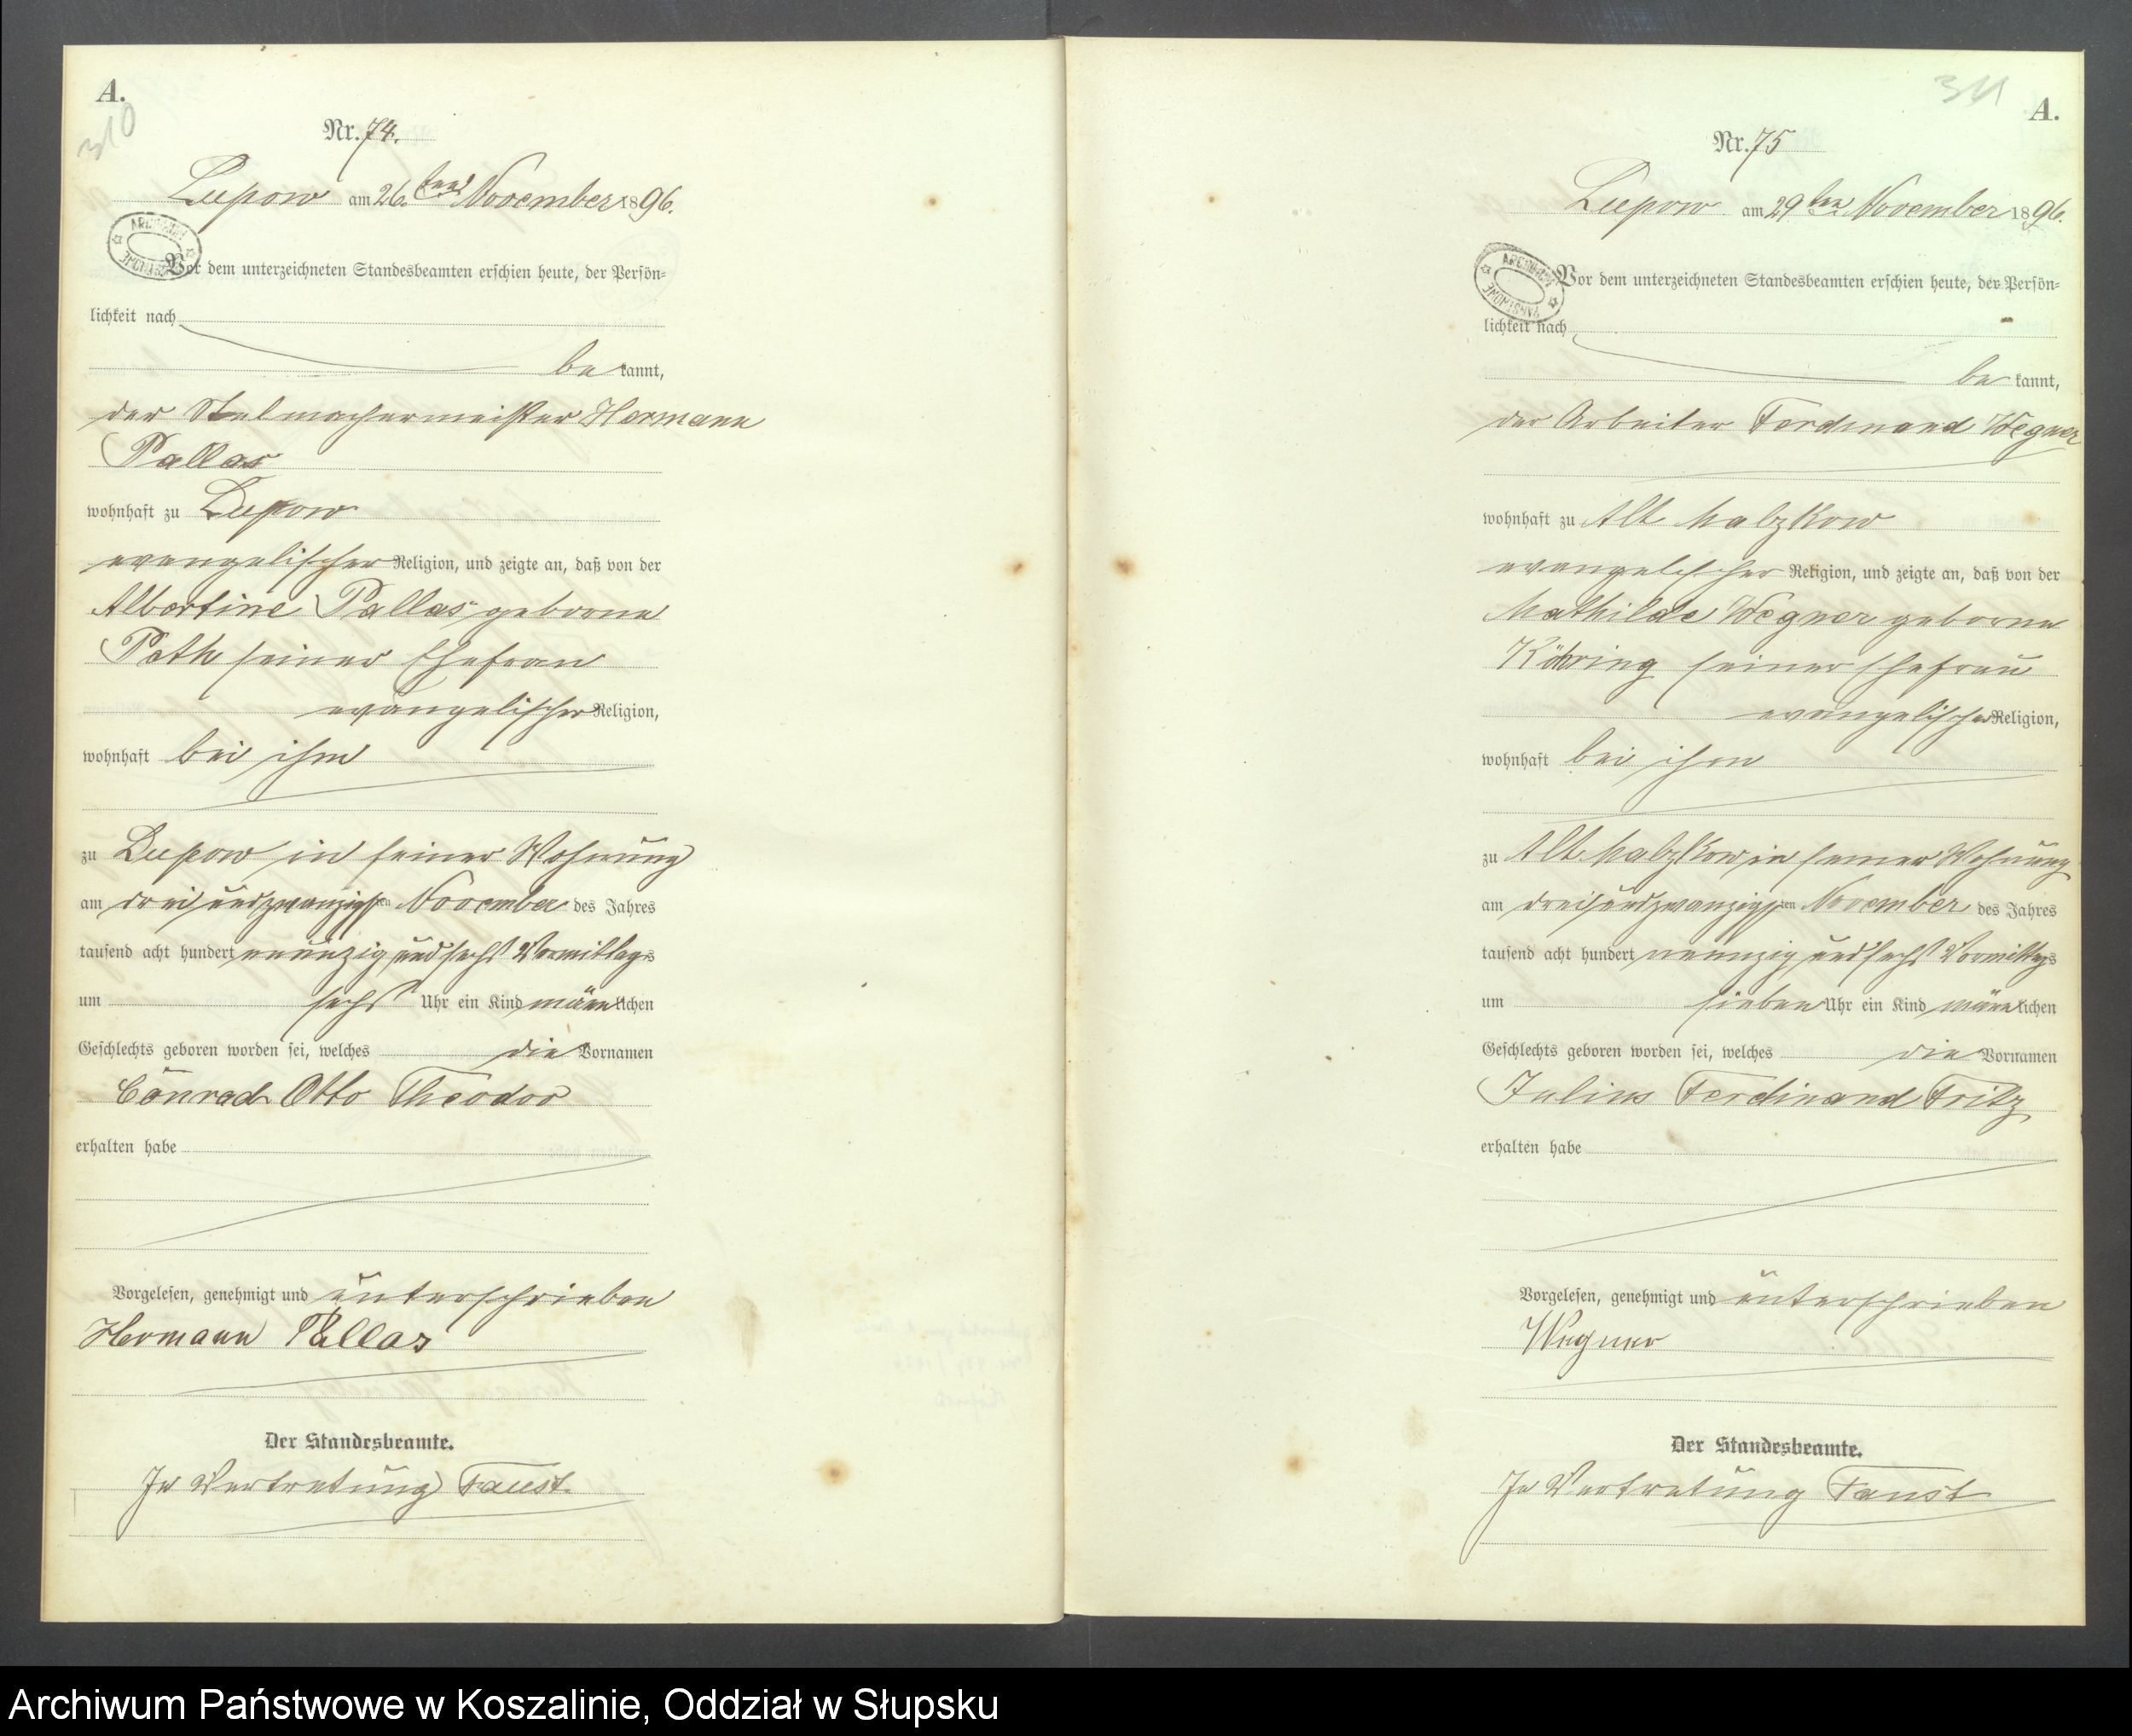 A.
310
Nr. 74.
Lupow am 26ten November 1896.
ARCHIWUM
Vor dem unterzeichneten Standesbeamten erschien heute, der Persön=
lichkeit nach
be kannt,
der Stelmachermeister Hermann
Pallas
wohnhaft zu Lupow
evangelischer Religion, und zeigte an, daß von der
Albertine Pallas geborne
Path seiner Ehefrau
evangelischer Religion,
wohnhaft bei ihm
zu Lupow in seiner Wohnung
am dreiundzwanzigsten November des Jahres
tausend acht hundert neunzig und sechs Vormittags
um sechs Uhr ein Kind männlichen
Geschlechts geboren worden sei, welches die Vornamen
Conrad Otto Theodor
erhalten habe
Vorgelesen, genehmigt und unterschrieben
Hermann Pallas
Der Standesbeamte.
In Vertretung Faust.
311
A.
Nr. 75
Lupow am 29ten November 1896.
ARCHIWUM PAŃSTWOWE
Vor dem unterzeichneten Standesbeamten erschien heute, der Persön=
lichkeit nach
be kannt,
der Arbeiter Ferdinand Wegner
wohnhaft zu Alt Malzkow
evangelischer Religion, und zeigte an, daß von der
Mathilde Wegner geborne
seiner Ehefrau
evangelischer Religion,
wohnhaft bei ihm
zu Alt Malzkow in seiner Wohnung
am dreiundzwanzigsten November des Jahres
tausend acht hundert neunzig und sechs Vormittags
um sieben Uhr ein Kind männlichen
Geschlechts geboren worden sei, welches die Vornamen
Julius Ferdinand Fritz
erhalten habe
Vorgelesen, genehmigt und unterschrieben
Wegner
Der Standesbeamte.
In Vertretung Faust
Archiwum Państwowe w Koszalinie, Oddział w Słupsku